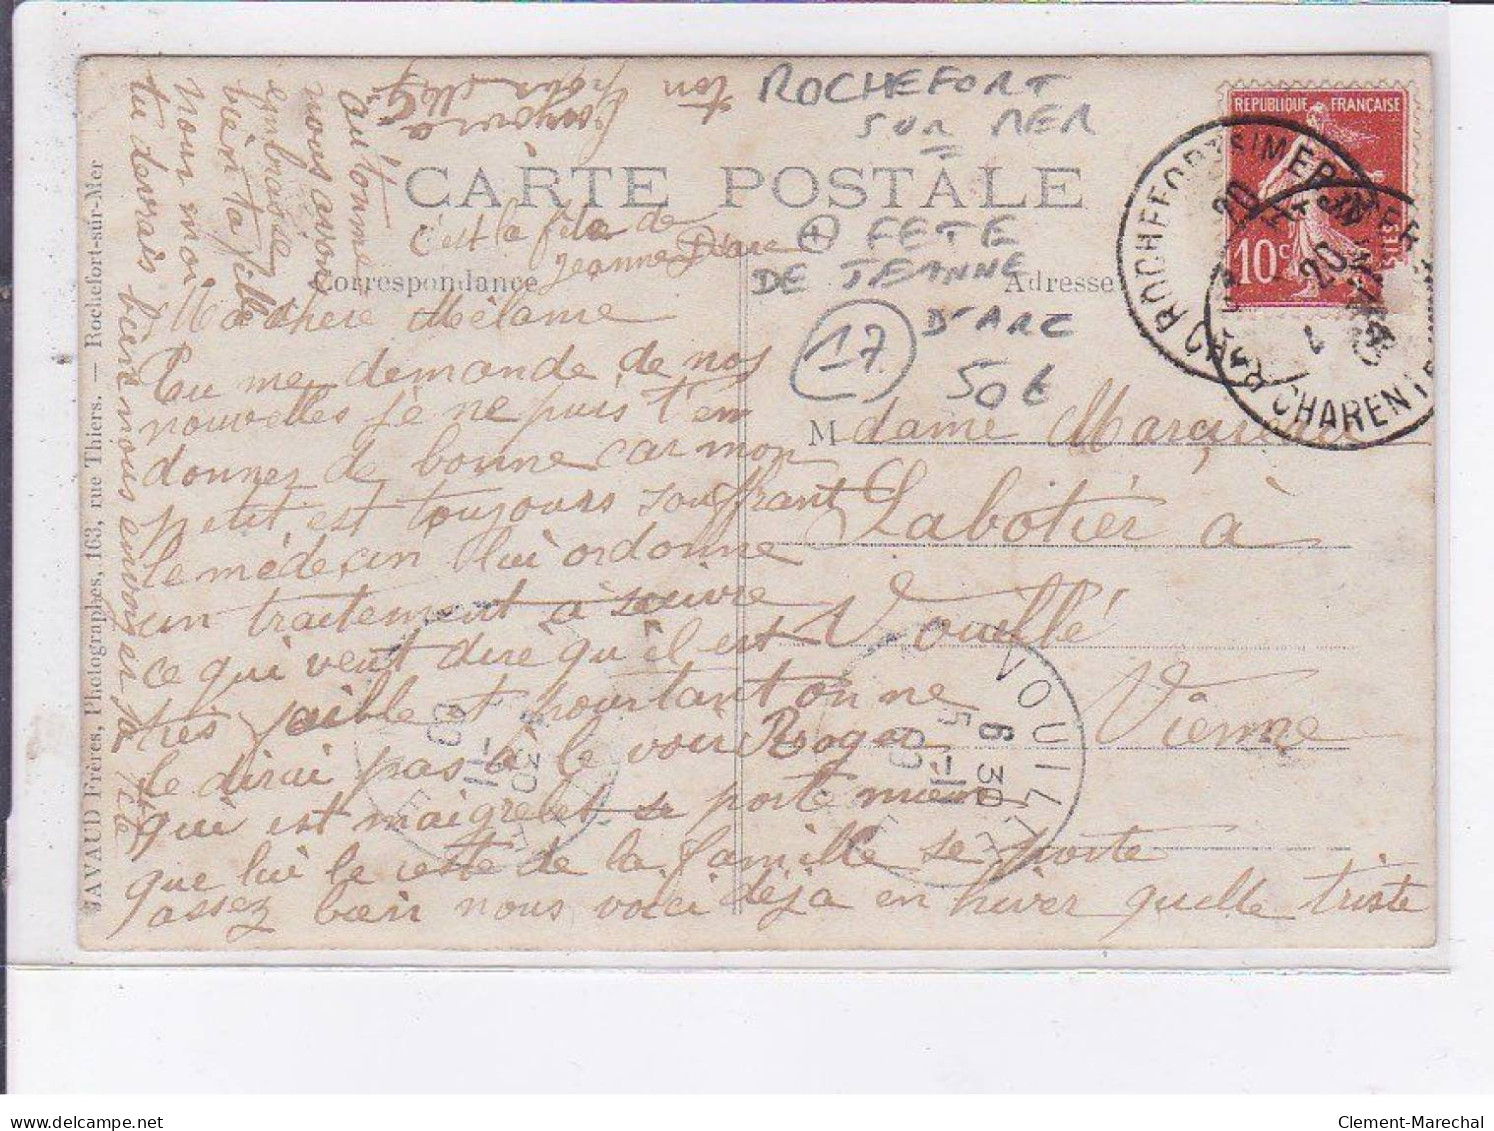 ROCHEFORT
SUR MER
CARTE POSTALE
+ FETE
DE JEANNE
D'ARC
17
50€
Correspondance
Adresse
c'est la fête de
Jeanne D'arc
Ma chère Mélanie
Tu me demande de nos
nouvelles je ne puis t'en
donner de bonne car mon
petit est toujours souffrant
le médeçin lui ordonne
un traitement à suivre
ce qui veut dire qu'il est
très faible et pourtant on ne
le dirai pas à le voir Roger
qui est maigrelet se porte mieux
que lui le reste de la famille se porte
assez bien nous voici déja en hiver quelle triste
autonne
nous avons
embrasse
bien ta fille
pour moi
tu devrais bien nous envoyer sa
ton
M
adame
Labotier à
Vouillé
Vienne
REPUBLIQUE FRANÇAISE
10c
POSTES
ROCHEFORT S/ MER
CHARENTE
VOUILLE
6 30
5 -11
09
JAVAUD Frères, Photographes, 163, rue Thiers. — Rochefort-sur-Mer
Clement-Marechal
www.delcampe.net